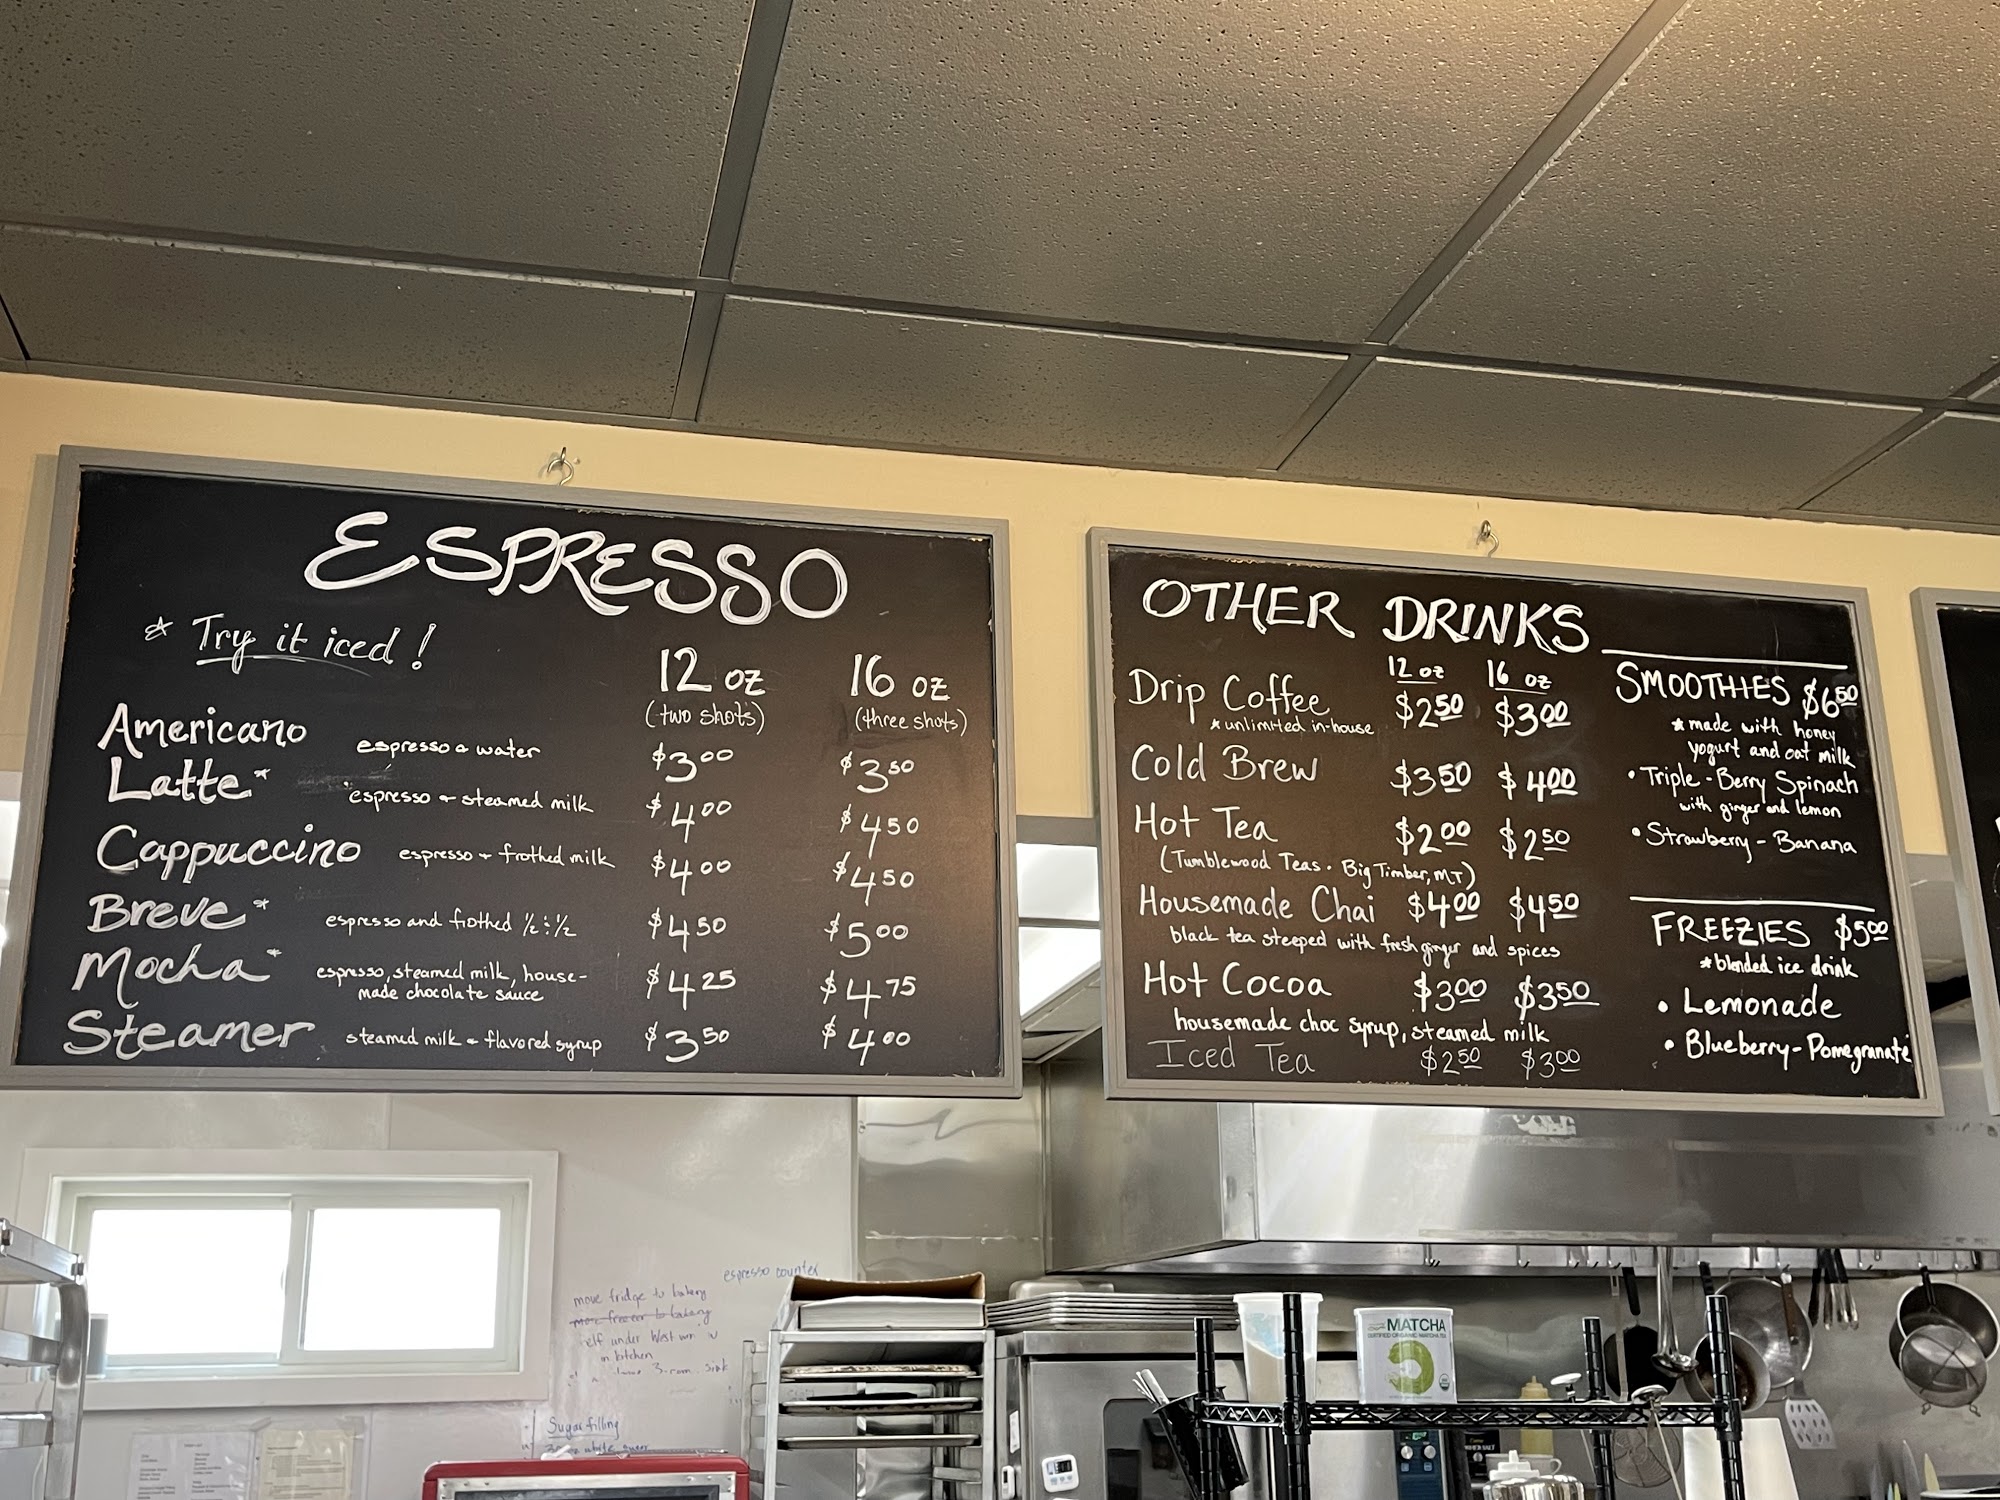 ESPRESSO
* Try it iced!
12 oz 16 oz
(two shots) (three shots)
Americano espresso & water $3.00 $3.50
Latte* espresso + steamed milk $4.00 $4.50
Cappuccino espresso + frothed milk $4.00 $4.50
Breve* espresso and frothed ½ : ½ $4.50 $5.00
Mocha* espresso, steamed milk, house- $4.25 $4.75
made chocolate sauce
Steamer steamed milk & flavored syrup $3.50 $4.00
OTHER DRINKS
12 oz 16 oz
Drip Coffee $2.50 $3.00
*unlimited in-house
Cold Brew $3.50 $4.00
Hot Tea $2.00 $2.50
(Tumblewood Teas · Big Timber, MT)
Housemade Chai $4.00 $4.50
black tea steeped with fresh ginger and spices
Hot Cocoa $3.00 $3.50
housemade choc syrup, steamed milk
Iced Tea $2.50 $3.00
SMOOTHIES $6.50
*made with honey
yogurt and oat milk
• Triple-Berry Spinach
with ginger and lemon
• Strawberry-Banana
FREEZIES $5.00
*blended ice drink
• Lemonade
• Blueberry-Pomegranate
espresso counter
move fridge to bakery
move freezer to bakery
in kitchen
Sugar filling
MATCHA
CERTIFIED ORGANIC MATCHA TEA